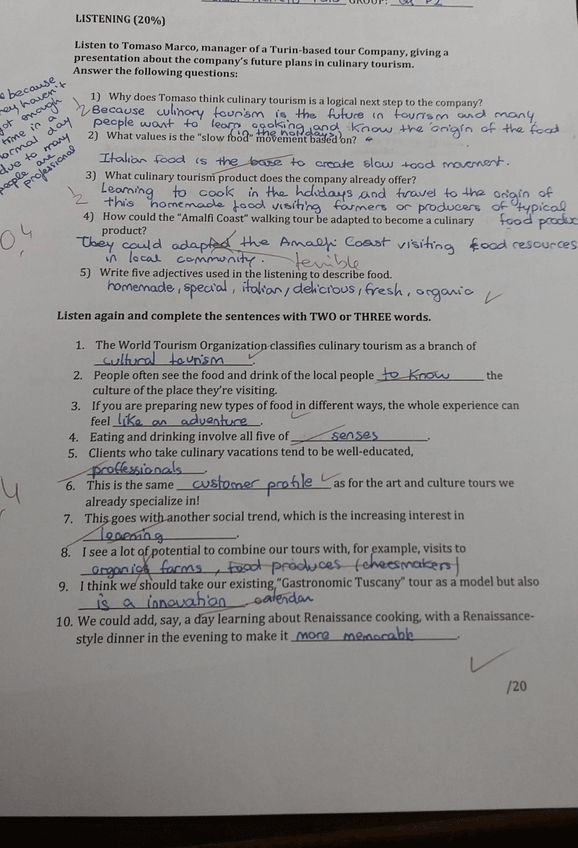 GROUP:
LISTENING (20%)
Listen to Tomaso Marco, manager of a Turin-based tour Company, giving a
presentation about the company's future plans in culinary tourism.
Answer the following questions:
because
they haven't
got enough
time in a
normal day
due to many
people are
professional
1) Why does Tomaso think culinary tourism is a logical next step to the company?
Because culinary tourism is the future in tourism and many
people want to learn cooking and know the origin of the food
in the holidays)
2) What values is the "slow food" movement based on?
Italian food is the base to create slow food movement.
3) What culinary tourism product does the company already offer?
Learning to cook in the holidays and travel to the origin of
this homemade food visiting farmers or producers of typical
food produc
4) How could the "Amalfi Coast" walking tour be adapted to become a culinary
product?
They could adapted the Amalfi Coast visiting food resources
in local community.
terrible
5) Write five adjectives used in the listening to describe food.
homemade, special, italian, delicious, fresh, organic
Listen again and complete the sentences with TWO or THREE words.
1. The World Tourism Organization classifies culinary tourism as a branch of
cultural tourism.
2. People often see the food and drink of the local people to know the
culture of the place they're visiting.
3. If you are preparing new types of food in different ways, the whole experience can
feel like an adventure.
4. Eating and drinking involve all five of senses.
5. Clients who take culinary vacations tend to be well-educated,
proffessionals.
6. This is the same customer profile as for the art and culture tours we
already specialize in!
7. This goes with another social trend, which is the increasing interest in
learning.
8. I see a lot of potential to combine our tours with, for example, visits to
organics farms, food produces (cheesmakers)
9. I think we should take our existing "Gastronomic Tuscany" tour as a model but also
is a innovation calendar
10. We could add, say, a day learning about Renaissance cooking, with a Renaissance-
style dinner in the evening to make it more memorable.
/20